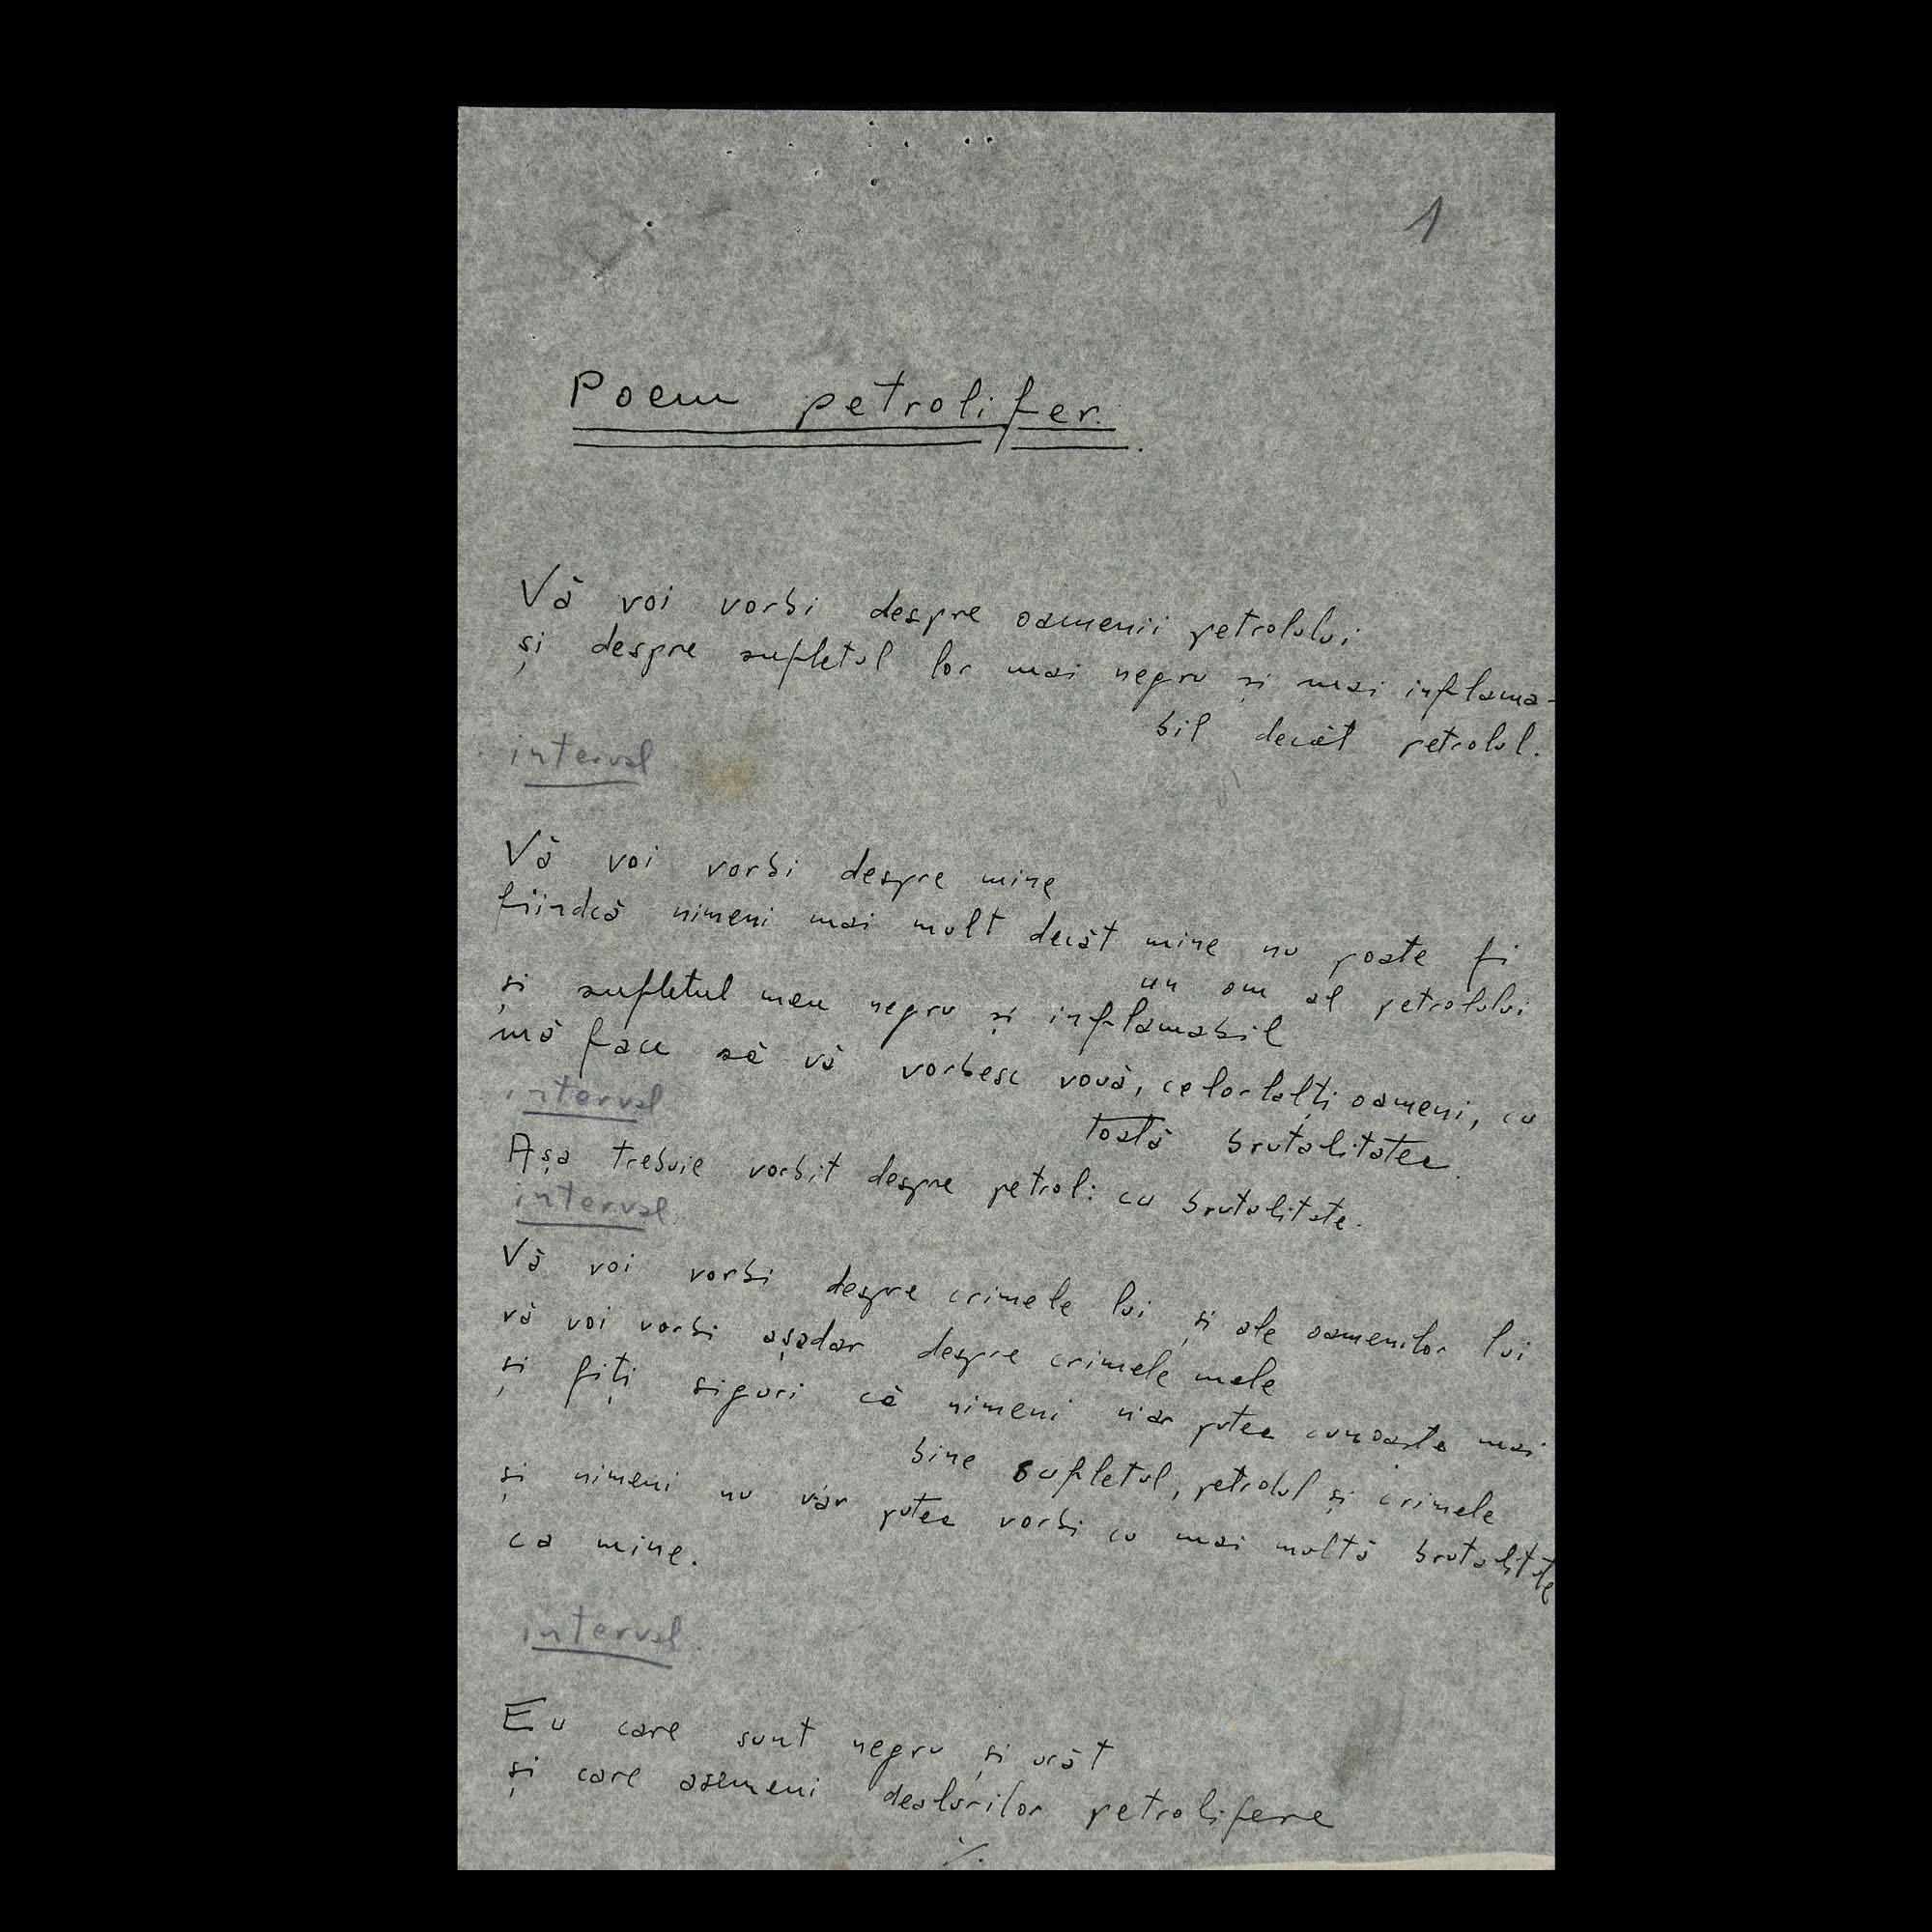 1
Poem petrolifer.
Vă voi vorbi despre oamenii petrolului
și despre sufletul lor mai negru și mai inflama-
bil decât petrolul.
interval
Vă voi vorbi despre mine
fiindcă nimeni mai mult decât mine nu poate fi
un om al petrolului
și sufletul meu negru și inflamabil
mă face să vă vorbesc vouă, celorlalți oameni, cu
toată brutalitatea.
interval
Așa trebuie vorbit despre petrol: cu brutalitate.
interval
Vă voi vorbi despre crimele lui și ale oamenilor lui
vă voi vorbi așadar despre crimele mele
și fiți siguri că nimeni n'ar putea cunoaște mai
bine sufletul, petrolul și crimele
și nimeni nu v'ar putea vorbi cu mai multă brutalitate
ca mine.
interval
Eu care sunt negru și urât
și care asemeni dealurilor petrolifere
./.